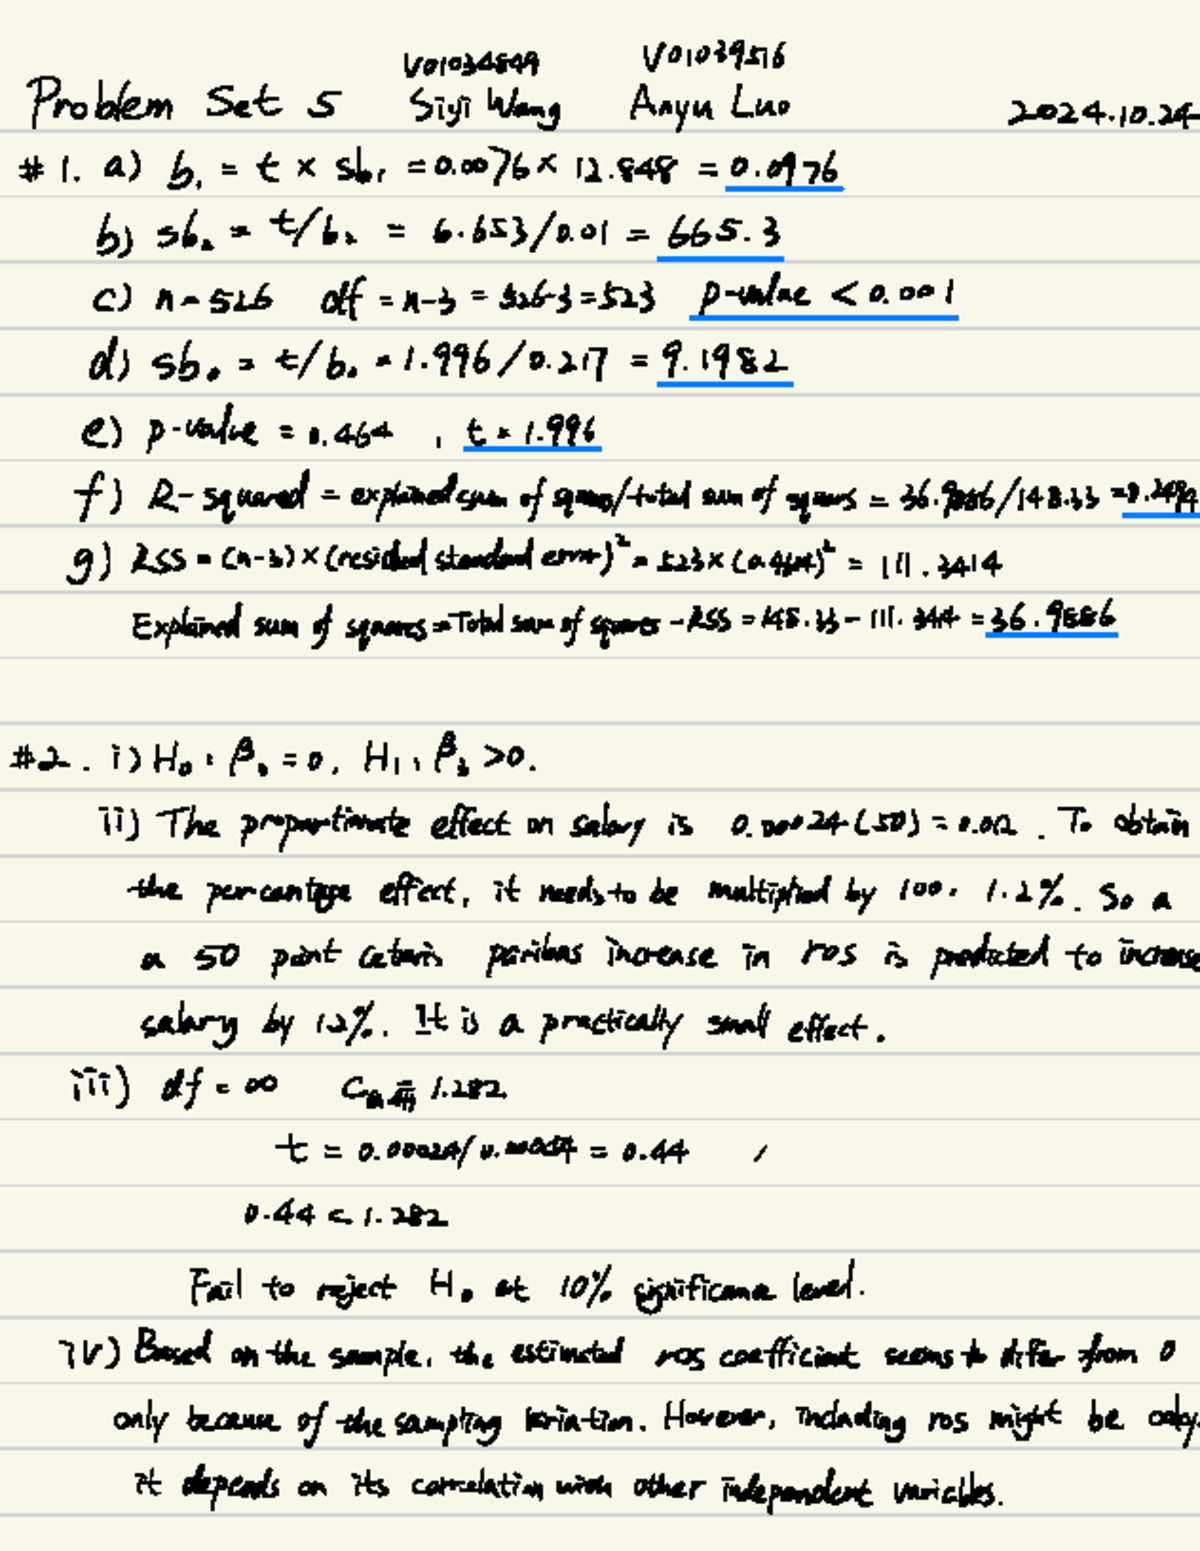 V01034849 V01039516
Problem Set 5 Siyi Wang Anyu Luo 2024.10.24
#1. a) b₁ = t × sb₁ = 0.0076 × 12.848 = 0.0976
b) sb₂ = t/b₂ = 6.653/0.01 = 665.3
c) n = 526 df = n-3 = 526-3 = 523 p-value < 0.001
d) sb₀ = t/b₀ = 1.996/0.217 = 9.1982
e) p-value = 0.464 , t = 1.996
f) R-squared = explained sum of squares/total sum of squares = 36.9886/148.33 =
g) RSS = (n-3) × (residual standard error)² = 523 × (0.4614)² = 111.3414
Explained sum of squares = Total sum of squares - RSS = 148.33 - 111.344 = 36.9886
#2. i) H₀ : β₃ = 0, H₁ : β₃ > 0.
ii) The proportionate effect on salary is 0.00024(50) = 0.012 . To obtain
the percentage effect, it needs to be multiplied by 100. 1.2%. So a
a 50 point ceteris paribus increase in ros is predicted to increase
salary by 1.2%. It is a practically small effect.
iii) df = ∞ C = 1.282
t = 0.00024/0.00054 = 0.44
0.44 < 1.282
Fail to reject H₀ at 10% significance level.
iv) Based on the sample, the estimated ros coefficient seems to differ from 0
only because of the sampling variation. However, including ros might be okay.
it depends on its correlation with other independent variables.